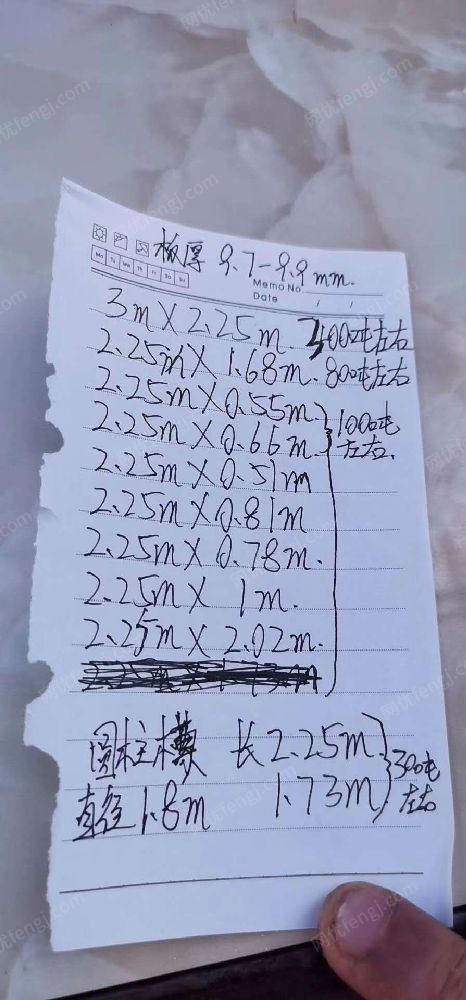 板厚 9.7-9.9mm.
Mo Tu We Th Fr Sa Su
Memo No.
Date / /
3m×2.25m. 400吨左右
2.25m×1.68m. 800吨左右
2.25m×0.55m
2.25m×0.66m 100吨
左右.
2.25m×0.51m
2.25m×0.81m
2.25m×0.78m.
2.25m× 1m.
2.25m×2.02m.
圆柱 长2.25m
直径1.8m 1.73m
300吨
左右
网优fengj.com